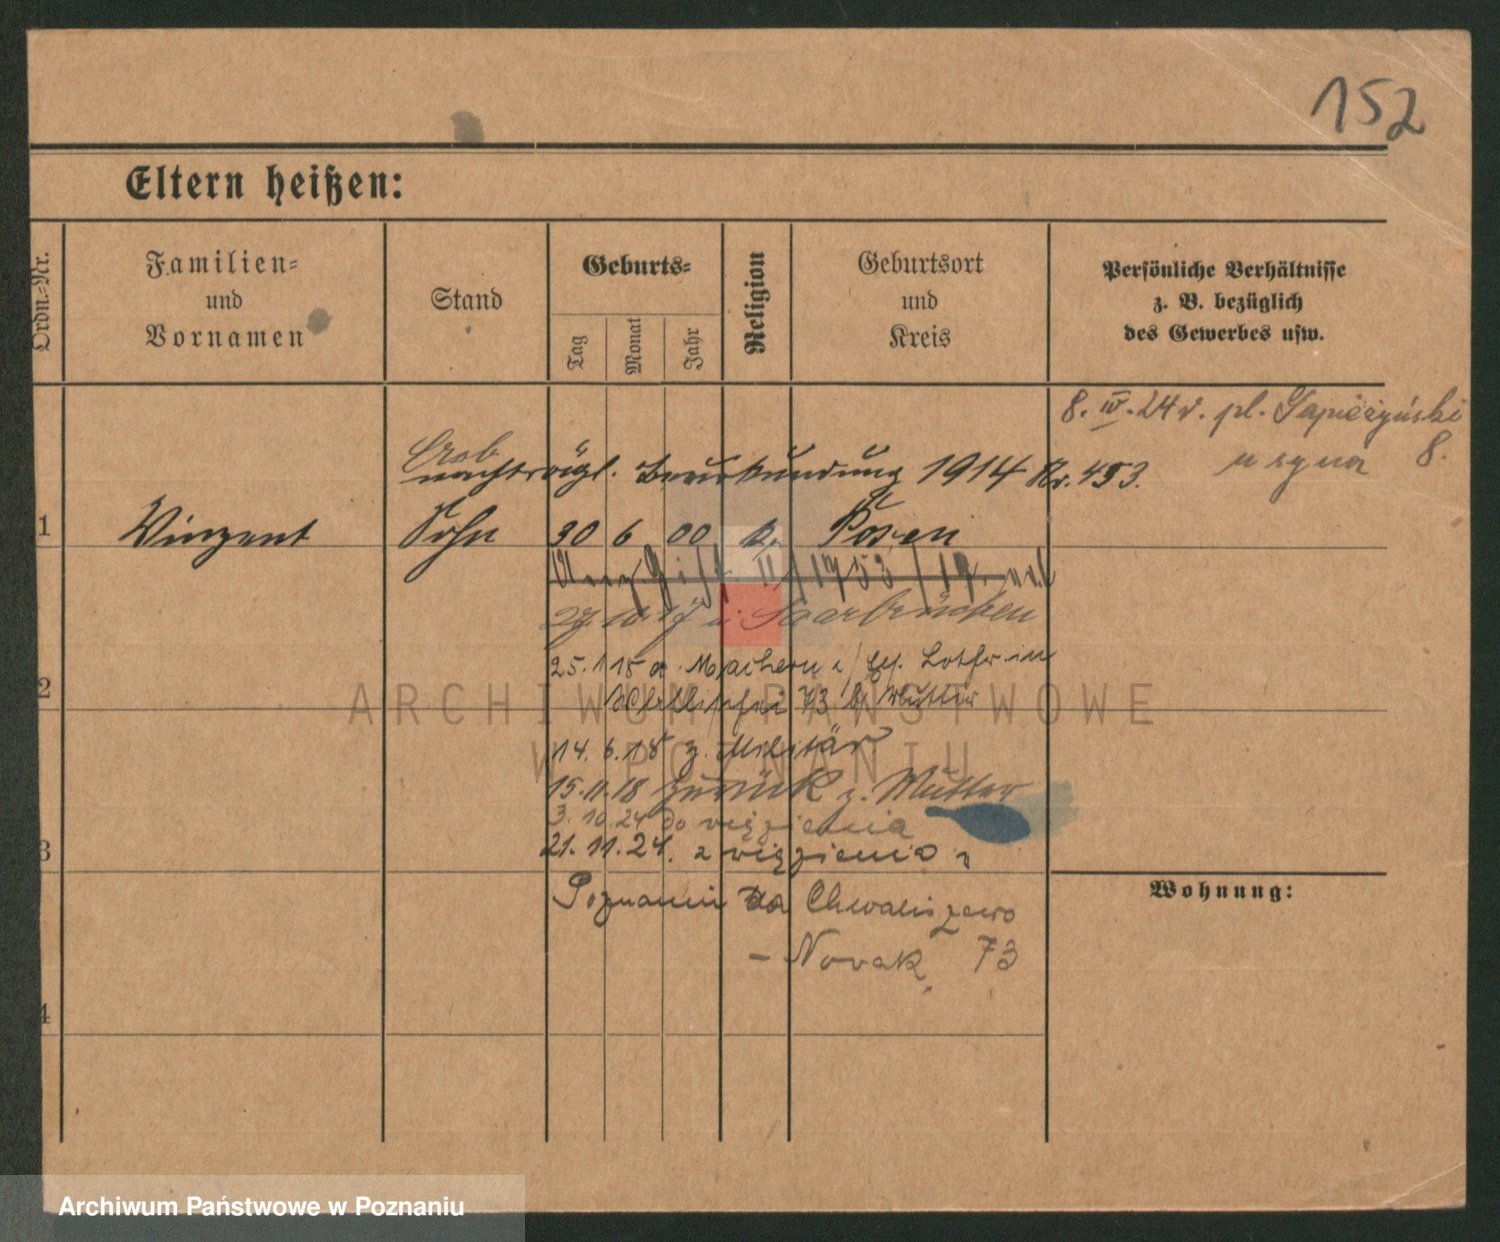 152
Eltern heißen:
Ordn.-Nr.
Familien-
und
Vornamen
Stand
Geburts-
Tag
Monat
Jahr
Religion
Geburtsort
und
Kreis
Persönliche Verhältnisse
z. B. bezüglich
des Gewerbes usw.
8. IV. 24 v. pl. Sapieżyński
8.
nachträgl. Beurkundung 1914 Nr. 453.
1 Vinzent Sohn 30 6 00 k. Posen
27. 10. 17 Saarbrücken
25. 1 18 a. Machern Lothr.
2
73 Mutter
ARCHIWUM PAŃSTWOWE
W POZNANIU
14. 6. 18 z. Militär
15. 11. 18 zurück z. Mutter
3. 10. 24 do więzienia
3
21. 11. 24. z więzienia
Wohnung:
Poznaniu na Chwaliszewo
– Novak 73
4
Archiwum Państwowe w Poznaniu